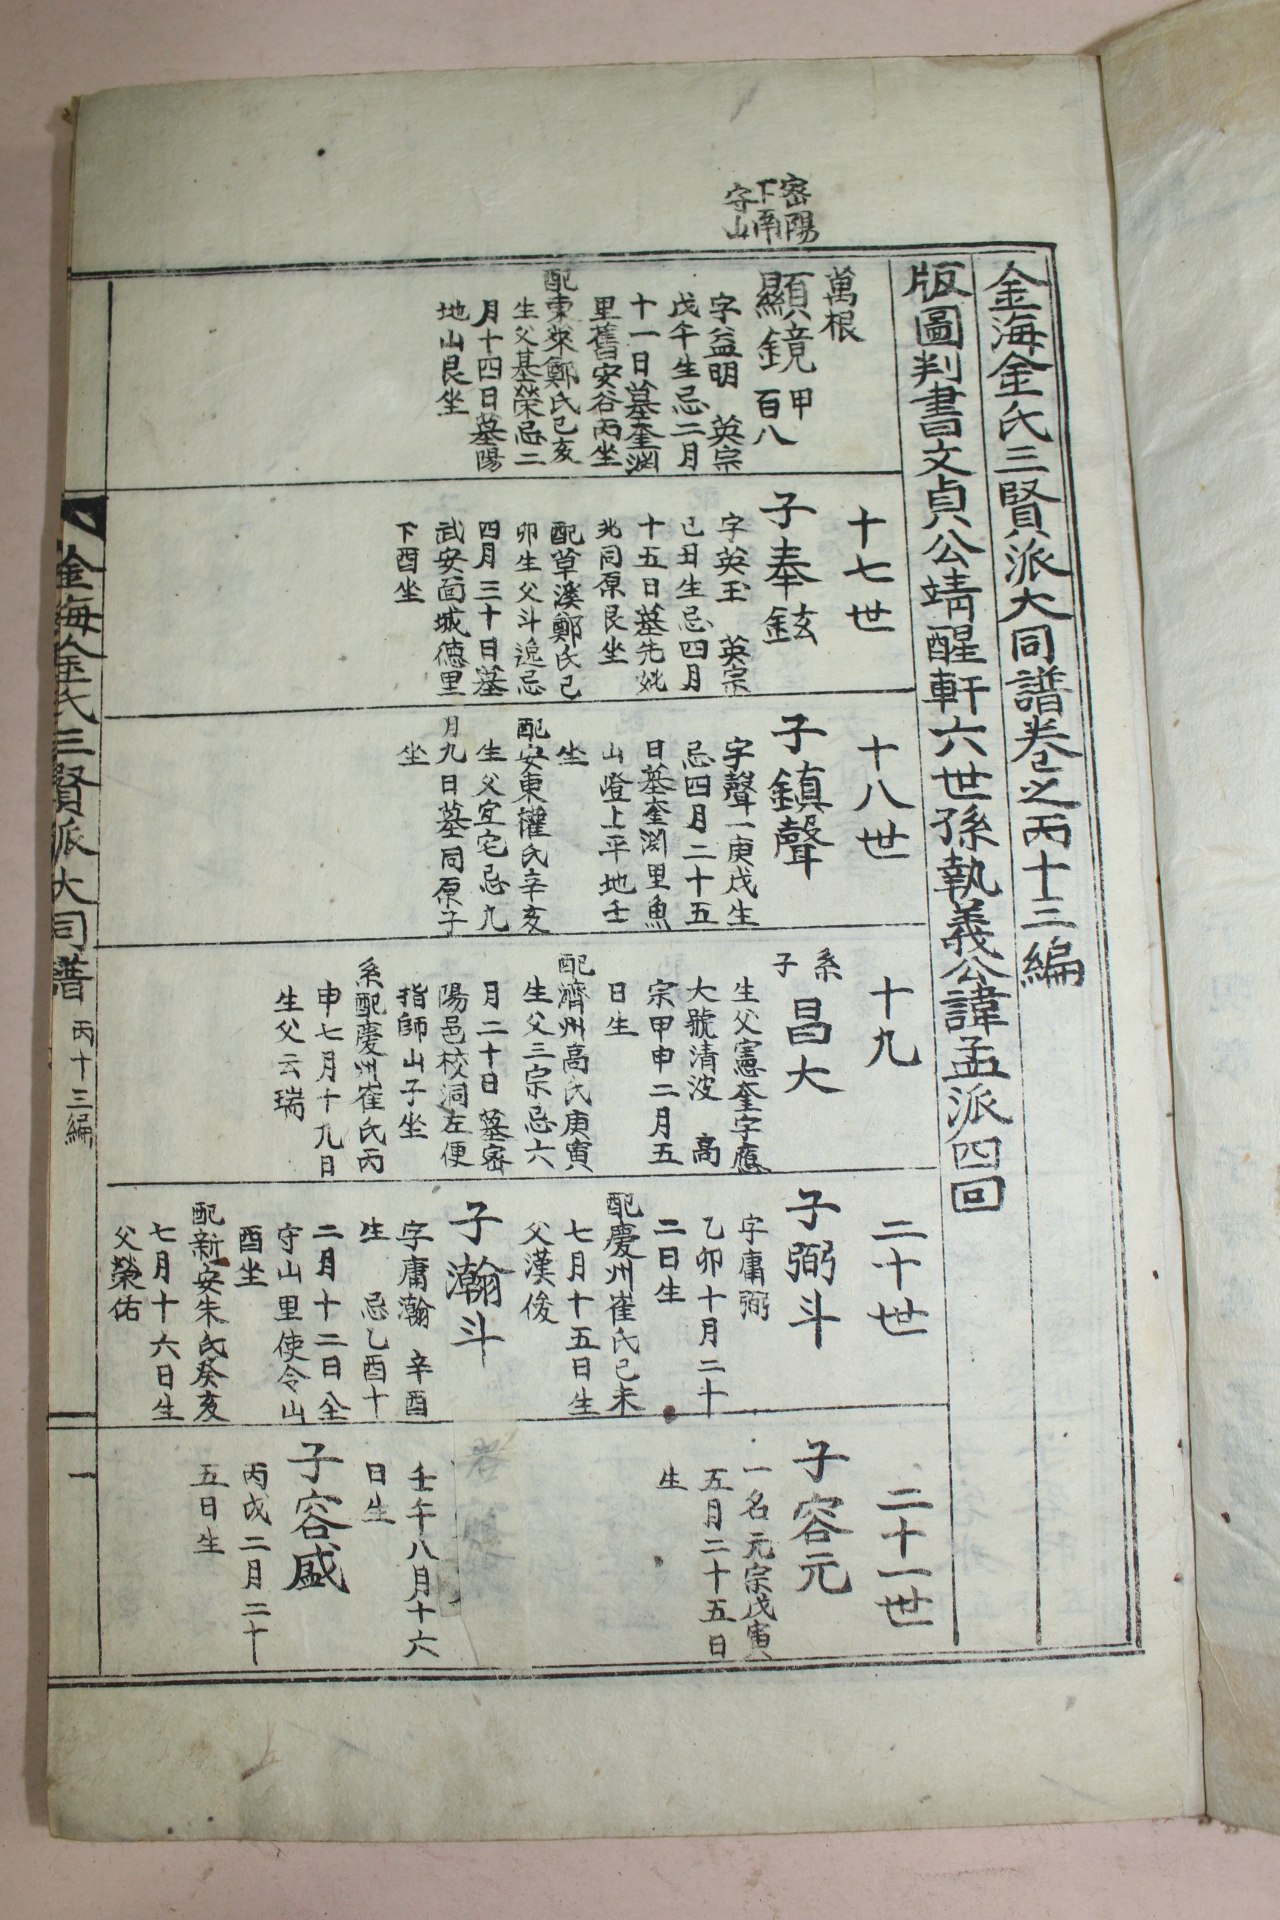 密陽
下南
守山
金海金氏三賢派大同譜卷之丙十三編
版圖判書文貞公靖醒軒六世孫執義公諱孟派四回
萬根
顯鏡
甲
百八
字益明　英宗
戊午生忌二月
十一日墓奎渊
里舊安谷丙坐
配東萊鄭氏己亥
生父基榮忌二
月十四日墓陽
地山艮坐
十七世
子奉鉉
字英玉　英宗
己丑生忌四月
十五日墓先妣
兆同原艮坐
配草溪鄭氏己
卯生父斗逸忌
四月三十日墓
武安面城德里
下酉坐
十八世
子鎮聲
字聲一庚戌生
忌四月二十五
日墓奎渊里魚
山嶝上平地壬
坐
配安東權氏辛亥
生父宜宅忌九
月九日墓同原子
坐
十九
系
子
昌大
生父憲奎字應
大號清波　高
宗甲申二月五
日生
配濟州高氏庚寅
生父三宗忌六
月二十日墓密
陽邑校洞左便
指師山子坐
系配慶州崔氏丙
申七月十九日
生父云瑞
二十世
子弼斗
字庸弼
乙卯十月二十
二日生
配慶州崔氏己未
七月十五日生
父漢俊
子瀚斗
字庸瀚　辛酉
生　忌乙酉十
二月十二日仝
守山里使令山
酉坐
配新安朱氏癸亥
七月十六日生
父榮佑
二十一世
子容元
一名元宗戊寅
五月二十五日
生
壬午八月十六
日生
子容盛
丙戌二月二十
五日生
金海金氏三賢派大同譜　丙十三編
一